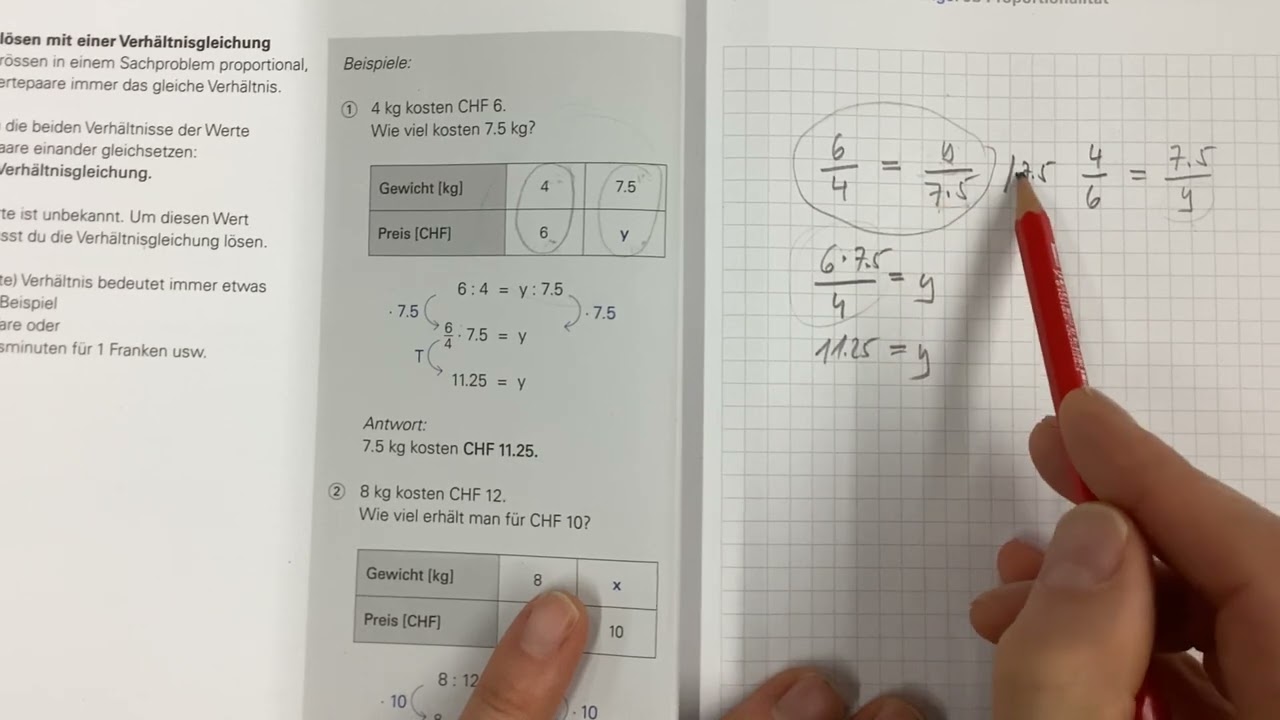 lösen mit einer Verhältnisgleichung
rössen in einem Sachproblem proportional,
ertepaare immer das gleiche Verhältnis.
die beiden Verhältnisse der Werte
aare einander gleichsetzen:
Verhältnisgleichung.
rte ist unbekannt. Um diesen Wert
sst du die Verhältnisgleichung lösen.
te) Verhältnis bedeutet immer etwas
Beispiel
are oder
sminuten für 1 Franken usw.
Beispiele:
① 4 kg kosten CHF 6.
Wie viel kosten 7.5 kg?
Gewicht [kg] 4 7.5
Preis [CHF] 6 y
6 : 4 = y : 7.5
· 7.5 · 7.5
6/4 · 7.5 = y
T
11.25 = y
Antwort:
7.5 kg kosten CHF 11.25.
② 8 kg kosten CHF 12.
Wie viel erhält man für CHF 10?
Gewicht [kg] 8 x
Preis [CHF] 10
8 : 12
· 10 · 10
Proportionalität
6/4 = y/7.5 4/6 = 7.5/y
6·7.5/4 = y
11.25 = y